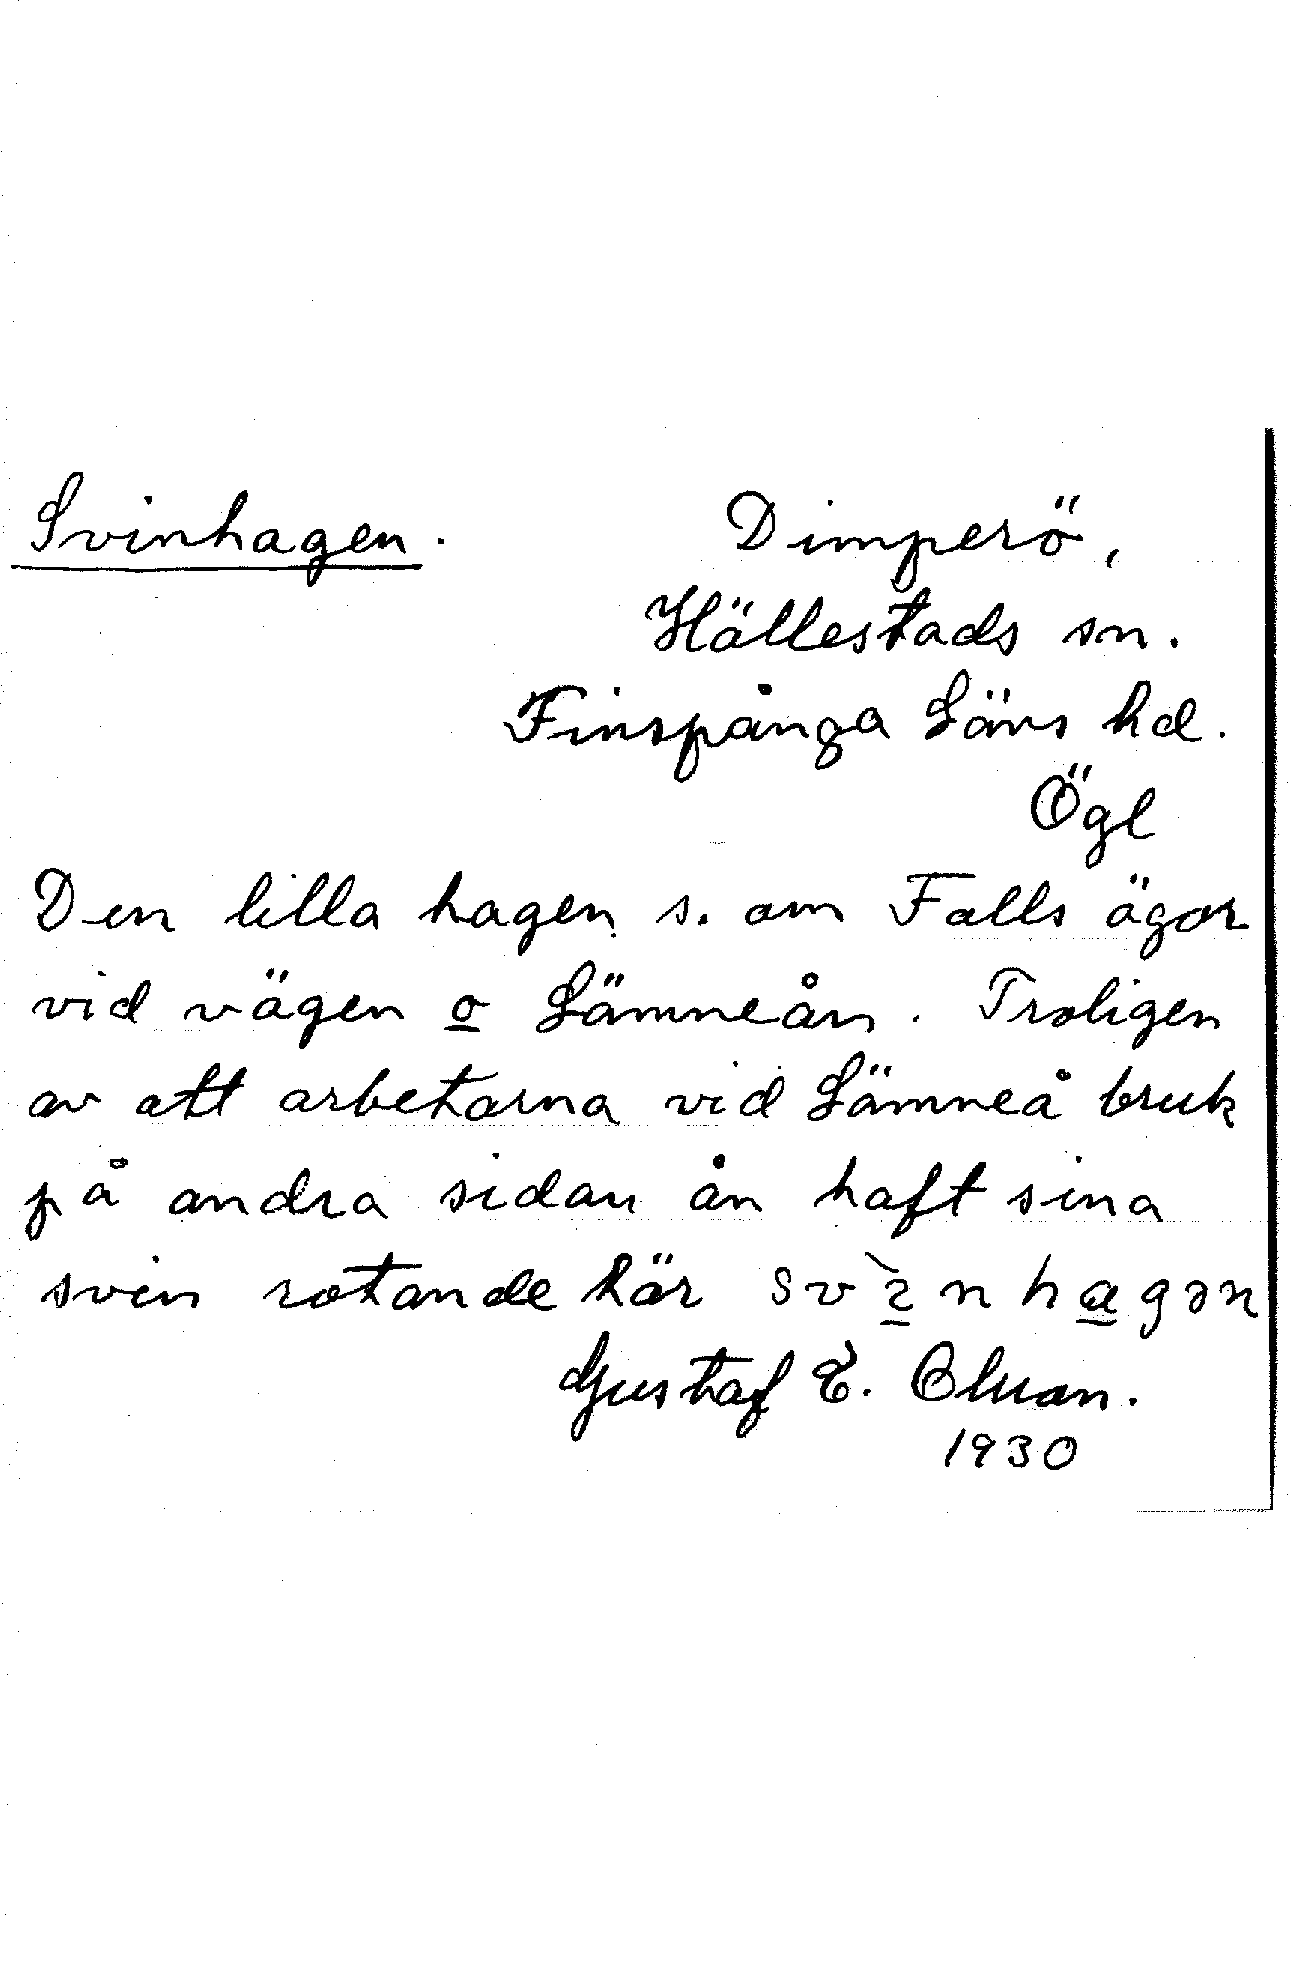 Svinhagen. Dimperö,
Hällestads sn.
Finspånga Läns hd.
Ögl
Den lilla hagen s. om Falls ägor
vid vägen o Lämneån. Troligen
av att arbetarna vid Lämneå bruk
på andra sidan ån haft sina
svin rotande här
Gustaf E.
1930